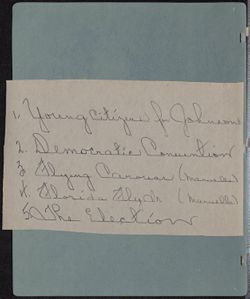 1. Young Citizens for Johnson
2. Democratic Convention
3. Flying Carousel (Marinelle)
4. Florida Fly In
5. The Election